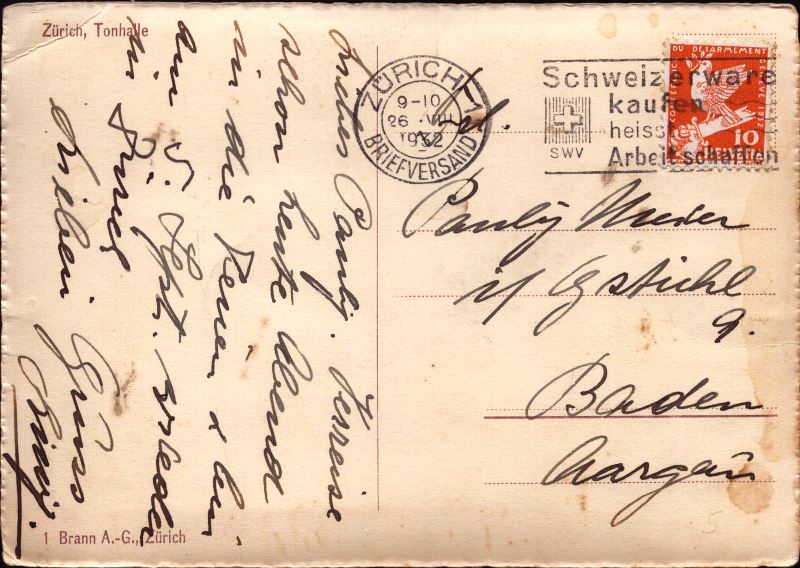 Zürich, Tonhalle
Liebes Pauly. Verreise
schon heute Abend
in die Ferien & bin
am 5. Sept. wieder
in
Lieben Gruss
1 Brann A.-G., Zürich
ZÜRICH 1
9-10
26. VIII.
1932
BRIEFVERSAND
Schweizerware
kaufen
heisst
Arbeit schaffen
SWV
DU DESARMEMENT
GENEVE 1932
10
Pauly Meier
Baden
Aargau
5